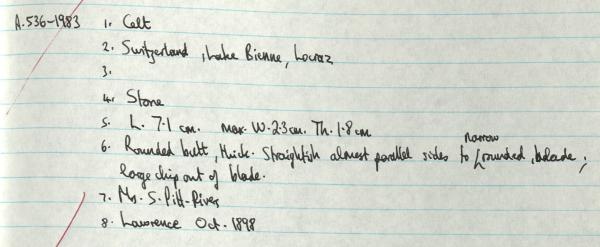 A.536-1983 1. Celt
2. Switzerland, Lake Bienne, Locraz
3.
4. Stone
5. L. 7.1 cm. max. W. 2.3 cm. Th. 1.8 cm
6. Rounded butt, thick. Straightish almost parallel sides to narrow rounded, blade;
large chip out of blade.
7. Mr. S. Pitt-Rivers
8. Lawrence Oct. 1898